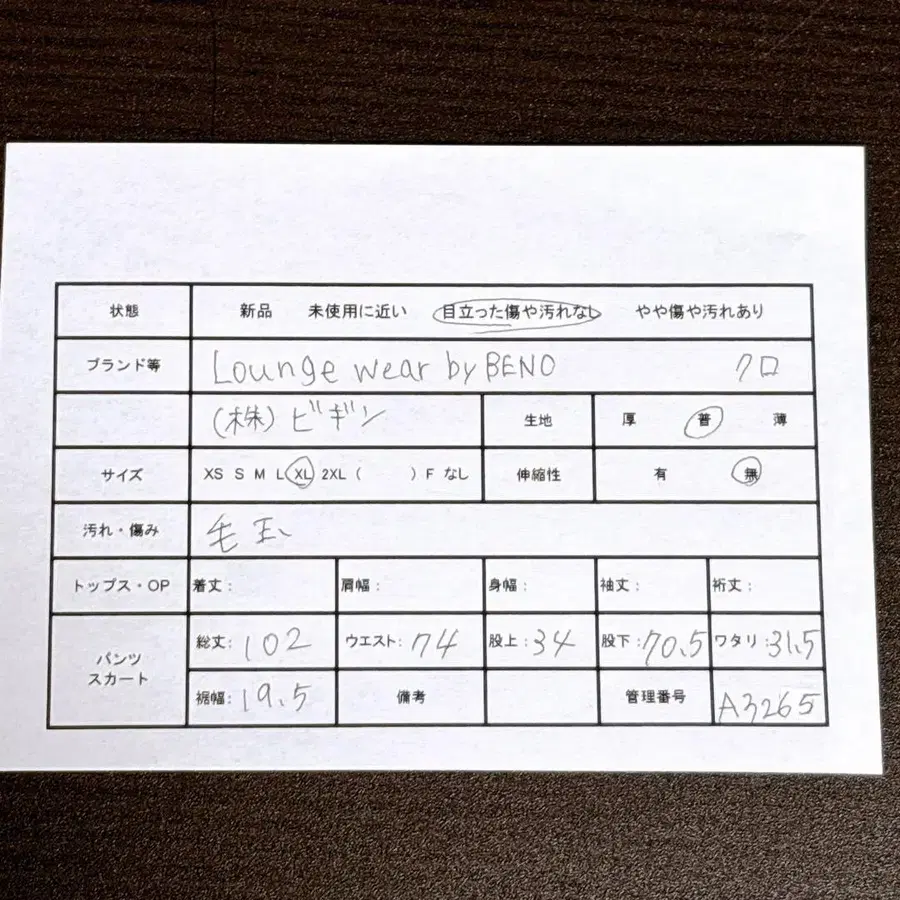 状態 新品 未使用に近い 目立った傷や汚れなし やや傷や汚れあり
ブランド等 Lounge wear by BENO クロ
(株)ビギン 生地 厚 普 薄
サイズ XS S M L XL 2XL ( ) F なし 伸縮性 有 無
汚れ・傷み 毛玉
トップス・OP 着丈: 肩幅: 身幅: 袖丈: 裄丈:
パンツ スカート 総丈: 102 ウエスト: 74 股上: 34 股下: 70.5 ワタリ: 31.5
裾幅: 19.5 備考 管理番号 A3265